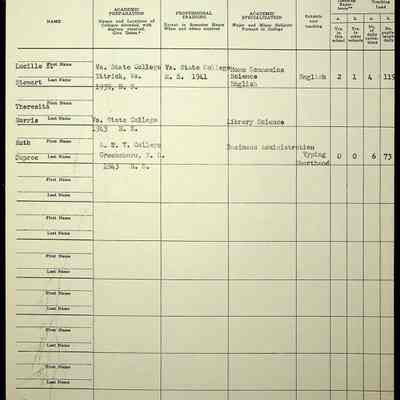 NAME
ACADEMIC PREPARATION
Names and Locations of Colleges attended, with degrees received. Give Dates.
PROFESSIONAL TRAINING
Extent in Semester Hours When and where received
ACADEMIC SPECIALIZATION
Major and Minor Subjects Pursued in College
Subjects now teaching
Teaching Load
a. b. a. b.
Yrs. in this school
Yrs. in other schools
No. of daily
No. pupils taught daily
Lucille First Name Va. State College Va. State College Home Economics
Ettrick, Va. 1941 Science English 2 1 4 115
Stewart Last Name 1939, English
First Name
Theresita
Last Name Va. State College Library Science
1943
Ruth First Name
A. & T. College Business Administration
Dupree Last Name Greensboro, N. C. Typing 0 0 6 73
1943 Shorthand
First Name
Last Name
First Name
Last Name
First Name
Last Name
First Name
Last Name
First Name
Last Name
First Name
Last Name